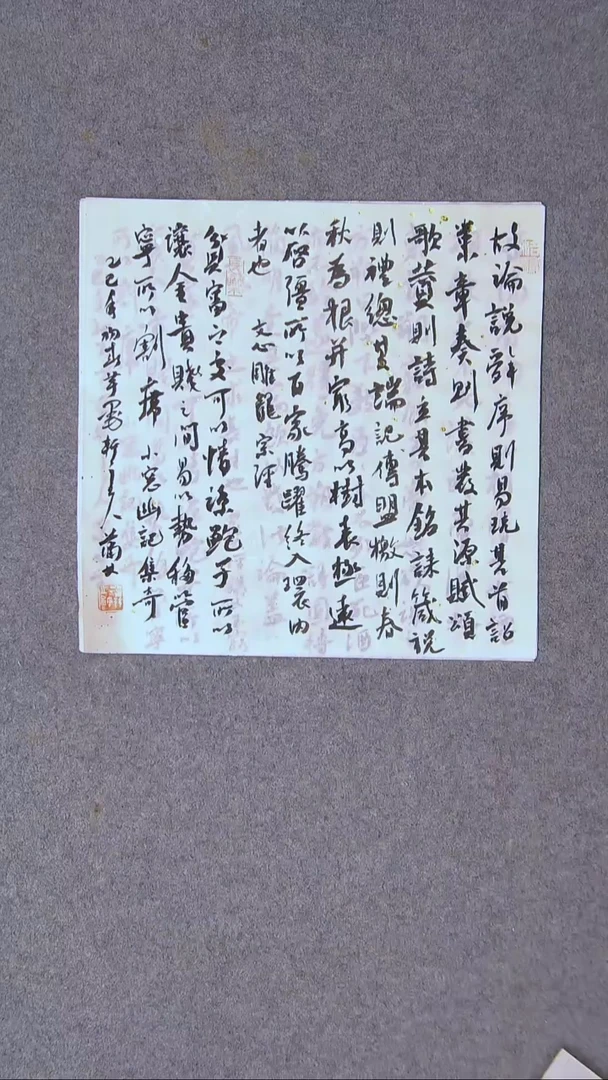 故論說辭序則易統其首詔
策章奏則書發其源賦頌
歌贊則詩立其本銘誄箴祝
則禮總其端記傳盟檄則春
秋為根并窮高以樹表極遠
以啓疆所以百家騰躍終入環內
者也 文心雕龍宗經
貧富之交可以情諒鮑子所以
讓金貴賤之間易以勢移管
寧所以割席 小窓幽記集奇
乙巳年初
主人